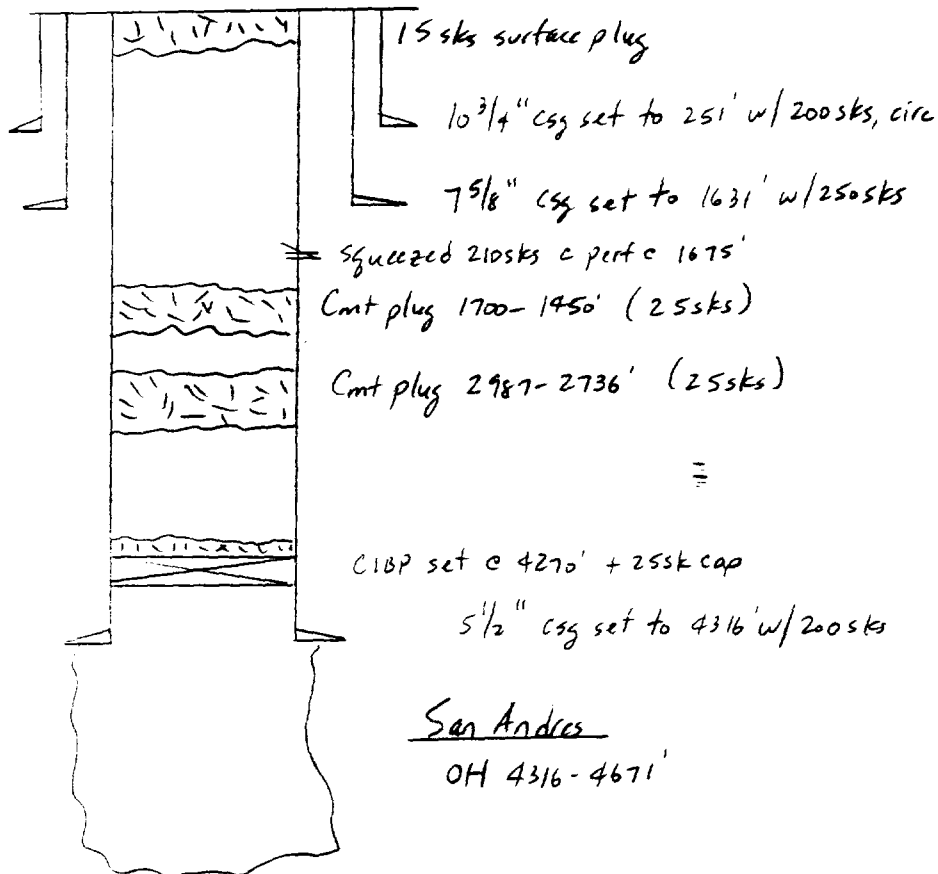 15 sks surface plug
10 3/4" csg set to 251' w/200sks, circ
7 5/8" csg set to 1631' w/250sks
squeezed 210sks c perf c 1675'
Cmt plug 1700-1450' (25sks)
Cmt plug 2987-2736' (25sks)
CIBP set c 4270' + 25sk cap
5 1/2" csg set to 4316' w/200sks
San Andres
OH 4316-4671'